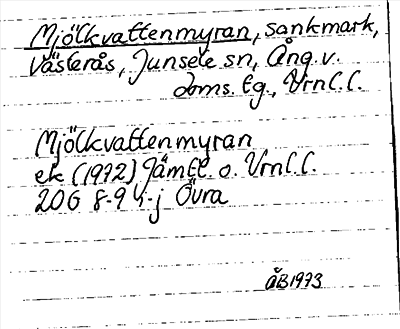 Mjölkvattenmyran, sankmark,
Västerås, Junsele sn, Ång. v.
doms. lg., Vrnl. l.
Mjölkvattenmyran
ek (1972) Jämtl. o. Vrnl. l.
20G 8-9 h-j Övra
ÅB 1973